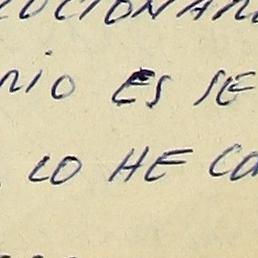 LUCIONAR
RIO ES SE
LO HE CO